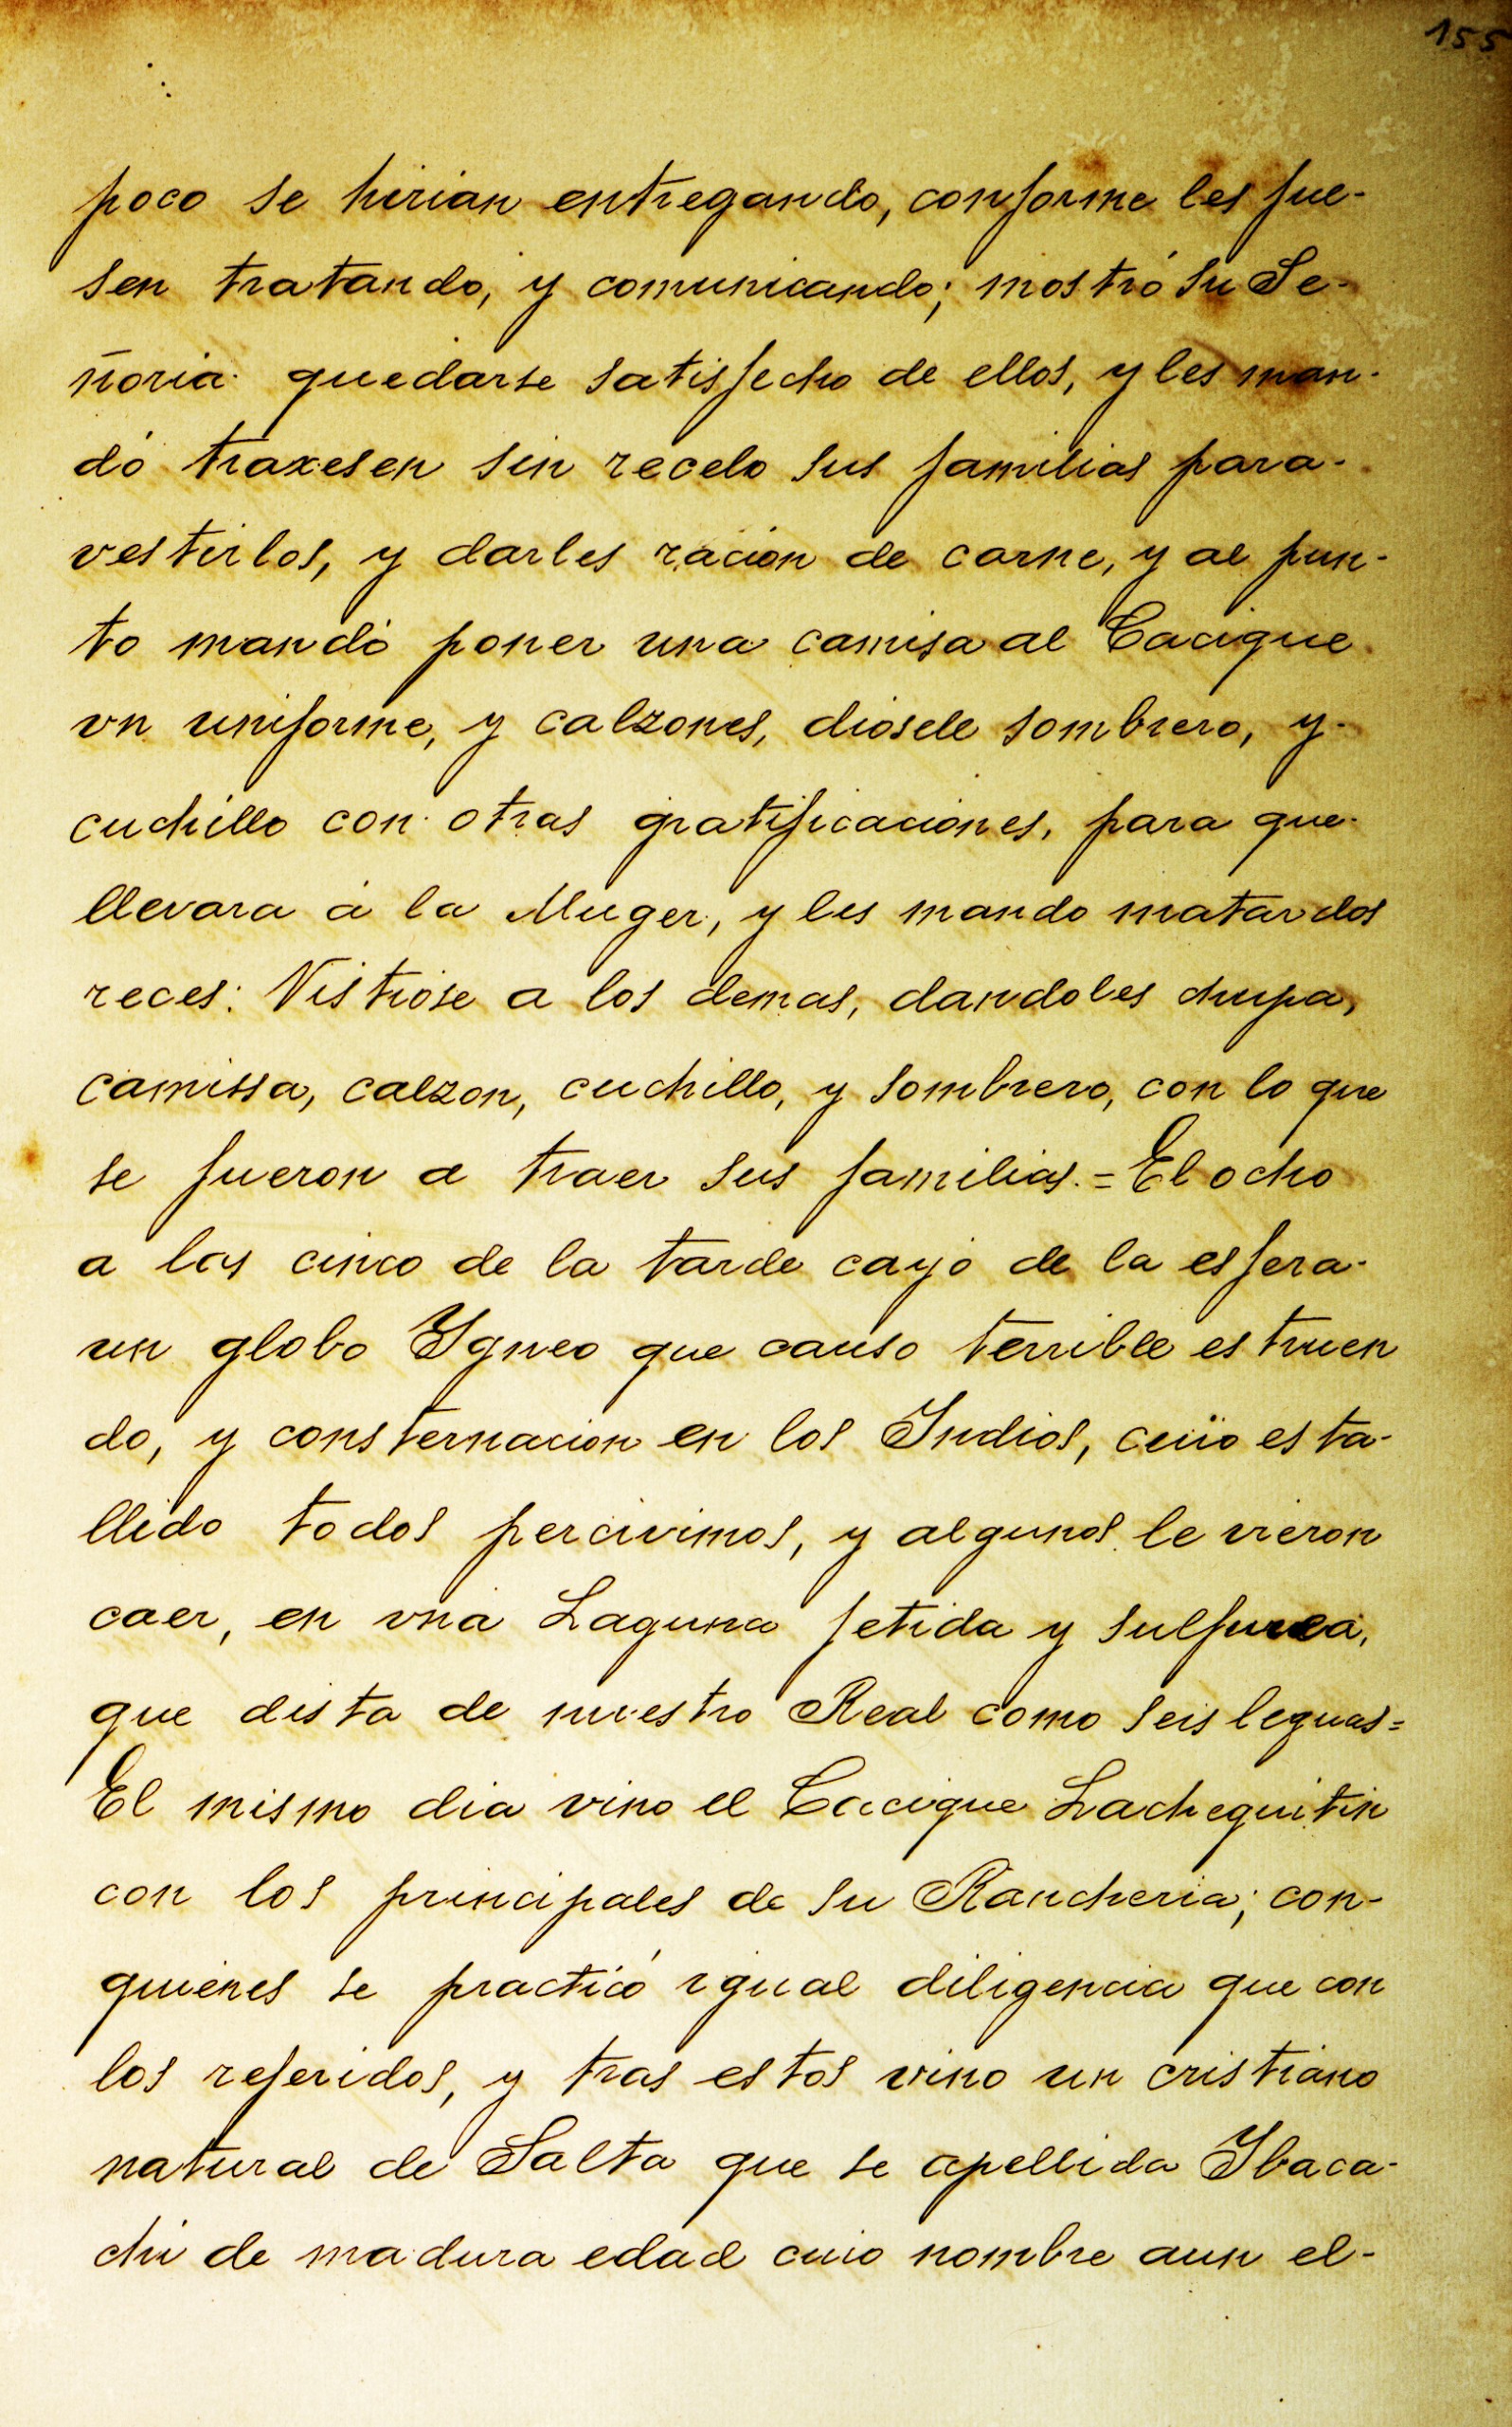 155
poco se hirian entregando, conforme les fue-
sen tratando, y comunicando; mostró su Se-
ñoria quedarse satisfecho de ellos, y les man-
dó traxesen sin recelo sus familias para-
vestirlos, y darles racion de carne, y al pun-
to mandó poner una camisa al Cacique
vn uniforme, y calzones, diosele sombrero, y-
cuchillo con otras gratificaciones, para que-
llevara á la Muger, y les mando matar dos
reces: Vistióse a los demas, dandoles chupa,
camissa, calzon, cuchillo, y sombrero, con lo que
se fueron a traer sus familias.=El ocho
a las cinco de la tarde cayó de la esfera-
un globo Ygneo que causo terrible estruen
do, y consternacion en los Indios, cuio esta-
llido todos percivimos, y algunos le vieron
caer, en vna Laguna fetida y sulfurea,
que dista de nuestro Real como seis leguas=
El mismo dia vino el Cacique Lachequitin
con los principales de su Rancheria; con-
quienes se practicó igual diligencia que con
los referidos, y tras estos vino un cristiano
natural de Salta que se apellida Ybaca-
chi de madura edad cuio nombre aun el-